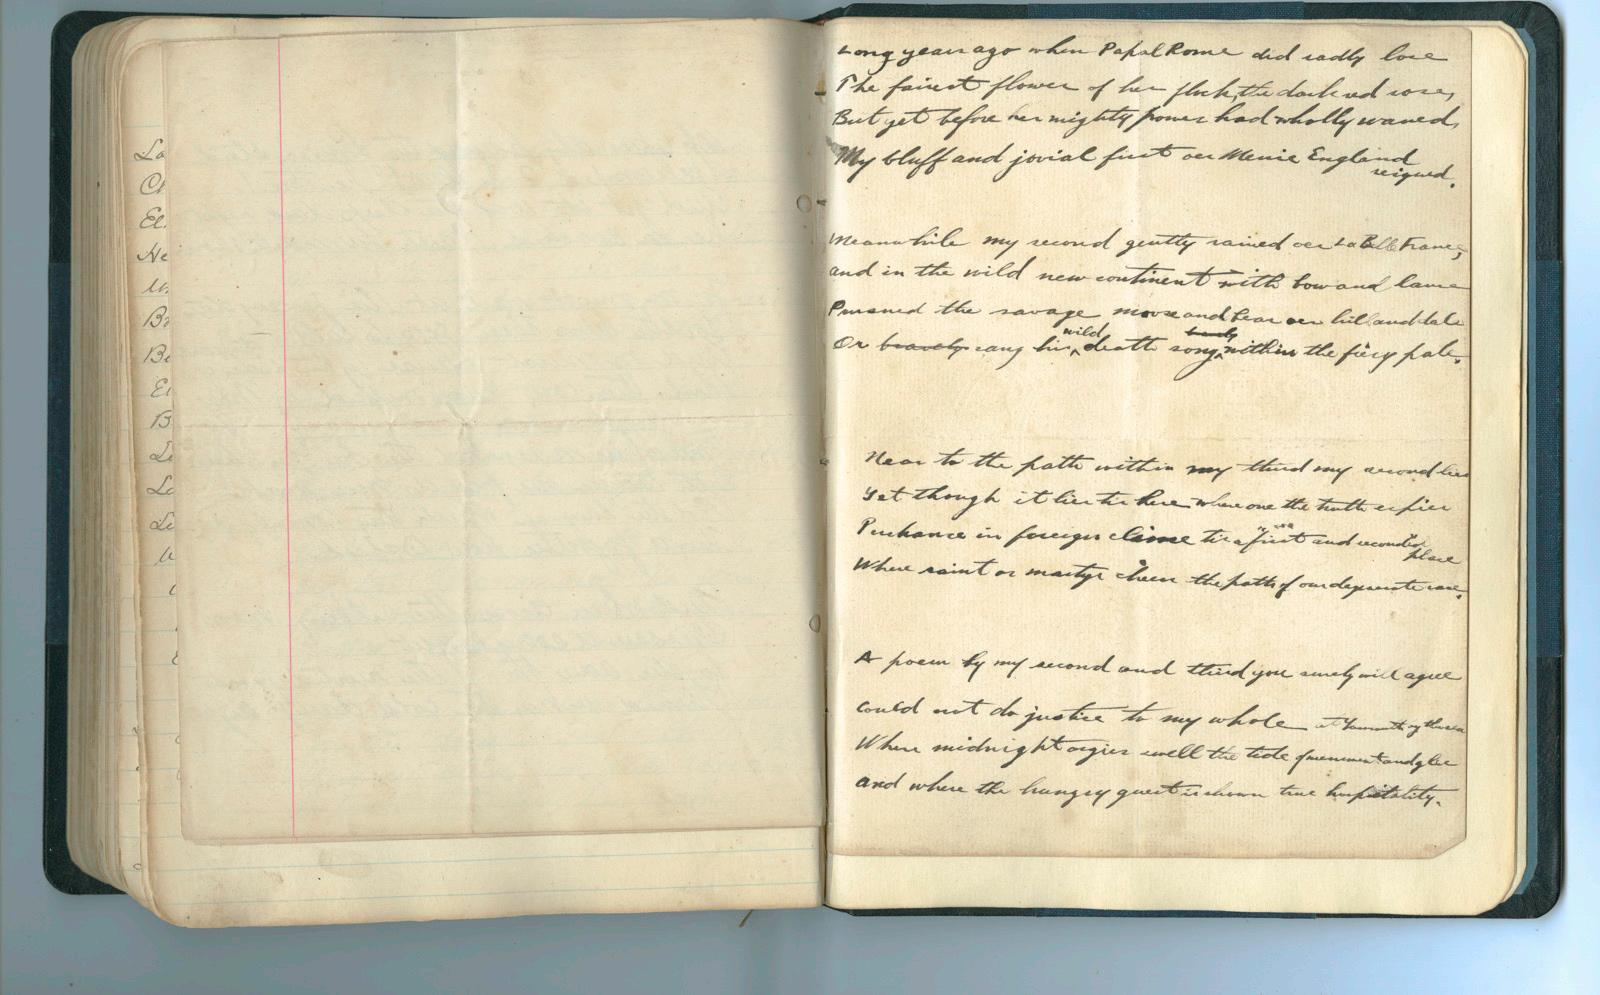 La
Ch
El
Ne
Br
Be
El
B
Le
Lo
Le
Long years ago when Papal Rome did sadly lose
The fairest flower of her flock, the dark red rose,
But yet before her mighty power had wholly waned,
My bluff and jovial first oer Merrie England
reigned.
Meanwhile my second gently rained oer La Belle France,
and in the wild new continent with bow and lance
Pursued the savage moose and bear oer hill and dale
wild
Or bravely sang his death song within the fiery pale.
Near to the path within my third my second lies
Yet though it lies tis here where one the truth espies
Perchance in foreign clime tis a first and second
place
Where saint or martyr cheer the path of our degenerate race.
A poem by my second and third you surely will agree
Could not do justice to my whole at Yarmouth by the sea
Where midnight orgies swell the tide of merriment and glee
and where the hungry guest is shown true hospitality.